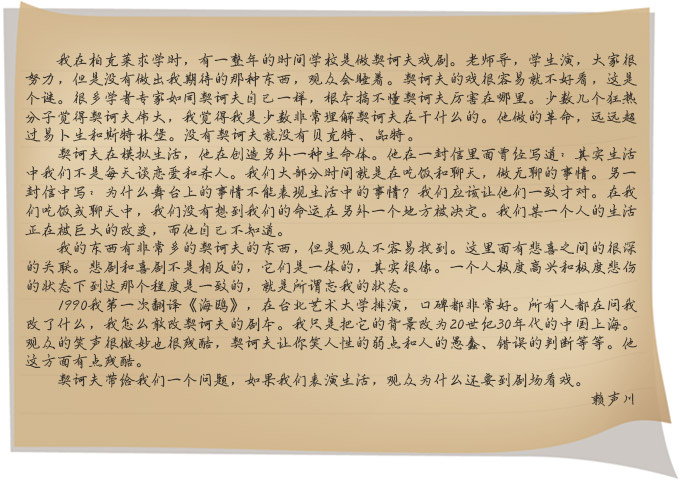 我在柏克莱求学时，有一整年的时间学校是做契诃夫戏剧。老师导，学生演，大家很
努力，但是没有做出我期待的那种东西，观众会睡着。契诃夫的戏很容易就不好看，这是
个谜。很多学者专家如同契诃夫自己一样，根本搞不懂契诃夫厉害在哪里。少数几个狂热
分子觉得契诃夫伟大，我觉得我是少数非常理解契诃夫在干什么的。他做的革命，远远超
过易卜生和斯特林堡。没有契诃夫就没有贝克特、品特。
契诃夫在模拟生活，他在创造另外一种生命体。他在一封信里面曾经写道：其实生活
中我们不是每天谈恋爱和杀人。我们大部分时间就是在吃饭和聊天，做无聊的事情。另一
封信中写：为什么舞台上的事情不能表现生活中的事情？我们应该让他们一致才对。在我
们吃饭或聊天中，我们没有想到我们的命运在另外一个地方被决定。我们某一个人的生活
正在被巨大的改变，而他自己不知道。
我的东西有非常多的契诃夫的东西，但是观众不容易找到。这里面有悲喜之间的很深
的关联。悲剧和喜剧不是相反的，它们是一体的，其实很像。一个人极度高兴和极度悲伤
的状态下到达那个程度是一致的，就是所谓忘我的状态。
1990我第一次翻译《海鸥》，在台北艺术大学排演，口碑都非常好。所有人都在问我
改了什么，我怎么敢改契诃夫的剧本。我只是把它的背景改为20世纪30年代的中国上海。
观众的笑声很微妙也很残酷，契诃夫让你笑人性的弱点和人的愚蠢、错误的判断等等。他
这方面有点残酷。
契诃夫带给我们一个问题，如果我们表演生活，观众为什么还要到剧场看戏。
赖声川